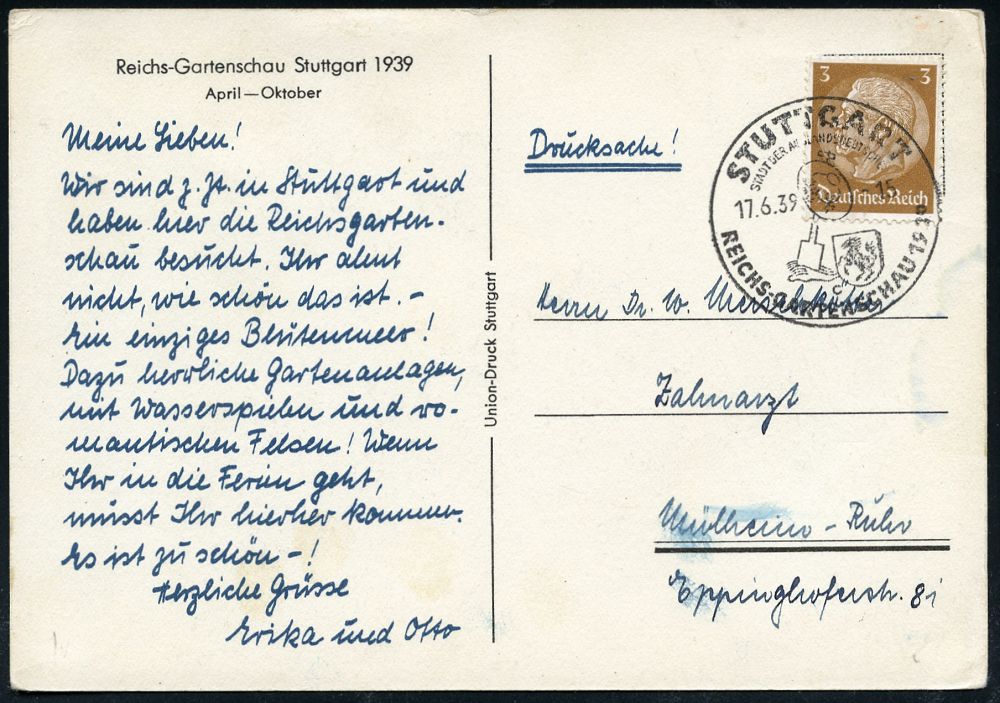 Reichs-Gartenschau Stuttgart 1939
April—Oktober
Meine Lieben!
Wir sind z. Zt. in Stuttgart und
haben hier die Reichsgarten-
schau besucht. Ihr ahnt
nicht, wie schön das ist. -
Ein einziges Blütenmeer!
Dazu herrliche Gartenanlagen,
mit Wasserspielen und ro-
mantischen Felsen! Wenn
Ihr in die Ferien geht,
müsst Ihr hierher kommen.
Es ist zu schön -!
Herzliche Grüsse
Erika und Otto
Union-Druck Stuttgart
Drucksache!
3 3
Deutsches Reich
STUTTGART
STADT DER AUSLANDSDEUTSCHEN
17.6.39 15
REICHS-GARTENSCHAU 1939
Herrn Dr. W.
Zahnarzt
Mülheim - Ruhr
Eppinghoferstr. 81